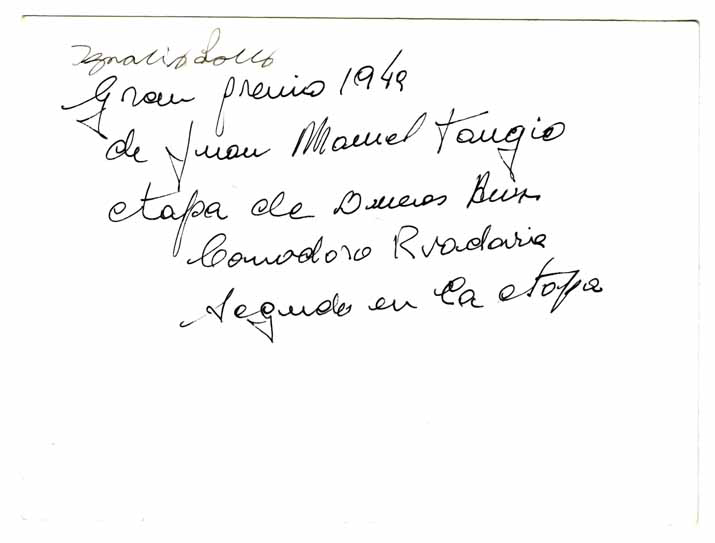 Ignacio Lollo
Gran premio 1949
de Juan Manuel Fangio
etapa de Buenos Aires
Comodoro Rivadavia
segundo en la etapa